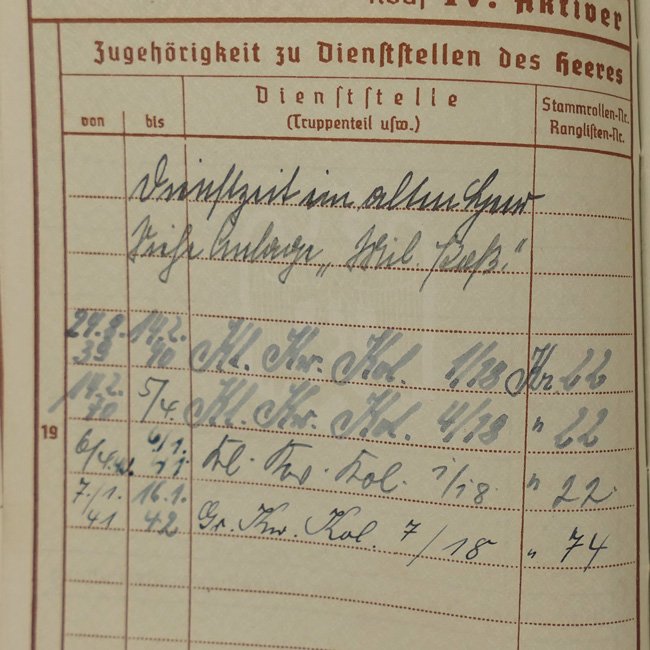 IV. Aktiver
Zugehörigkeit zu Dienststellen des Heeres
von bis Dienststelle (Truppenteil usw.) Stammrollen-Nr. Ranglisten-Nr.
Dienstzeit im alten Heer
Siehe Anlage „Mil. Paß."
24.8.39 14.2.40 Kl. Kw. Kol. 1/18 Nr. 22
14.2.40 5/4. Kl. Kw. Kol. 4/18 " 22
19
6/4.40. 6/1.41 Kl. Kw. Kol. 7/18 " 22
7./1.41 16.1.42 Gr. Kw. Kol. 7/18 " 74